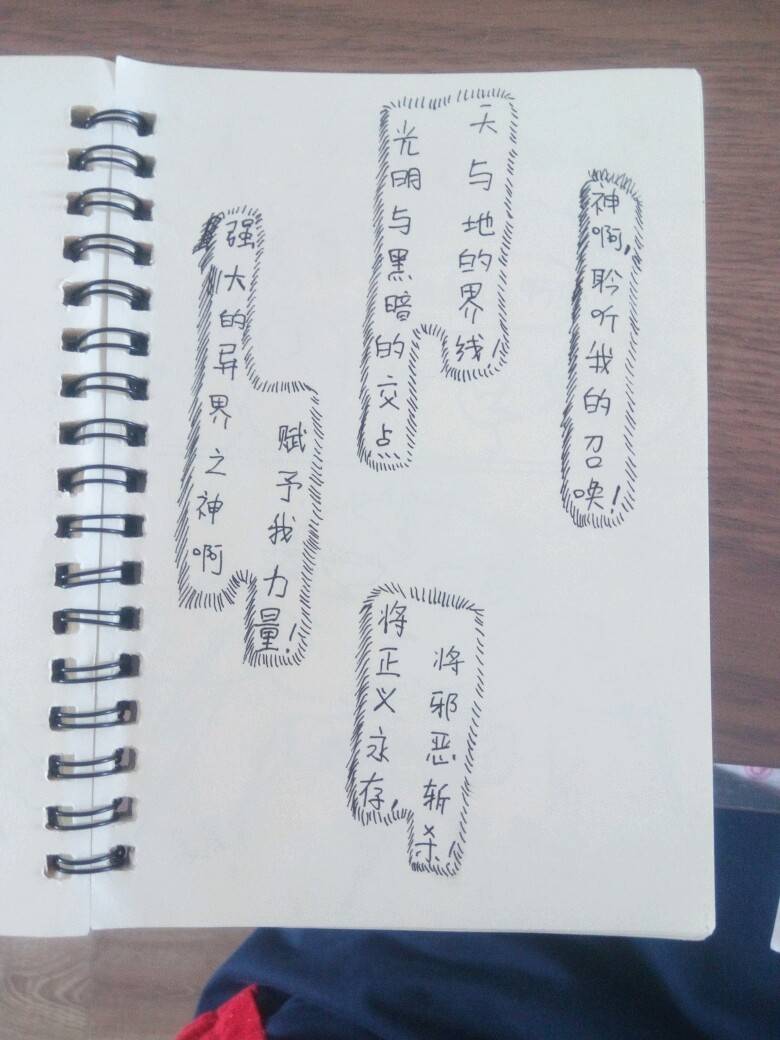 强大的异界之神啊
赋予我力量!
光明与黑暗的交点
天与地的界线!
将正义永存,
将邪恶斩杀!
神啊,聆听我的召唤!